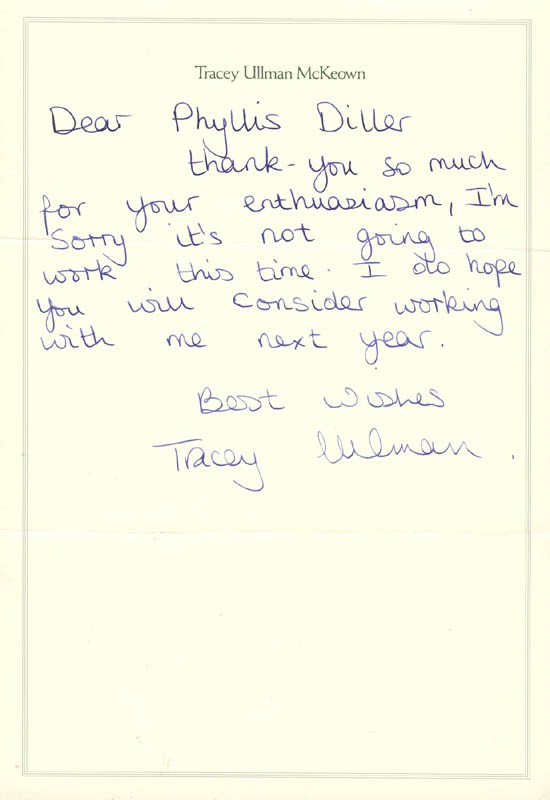 Tracey Ullman McKeown
Dear Phyllis Diller
thank-you so much
for your enthusiasm, I'm
sorry it's not going to
work this time. I do hope
you will consider working
with me next year.
Best Wishes
Tracey Ullman.